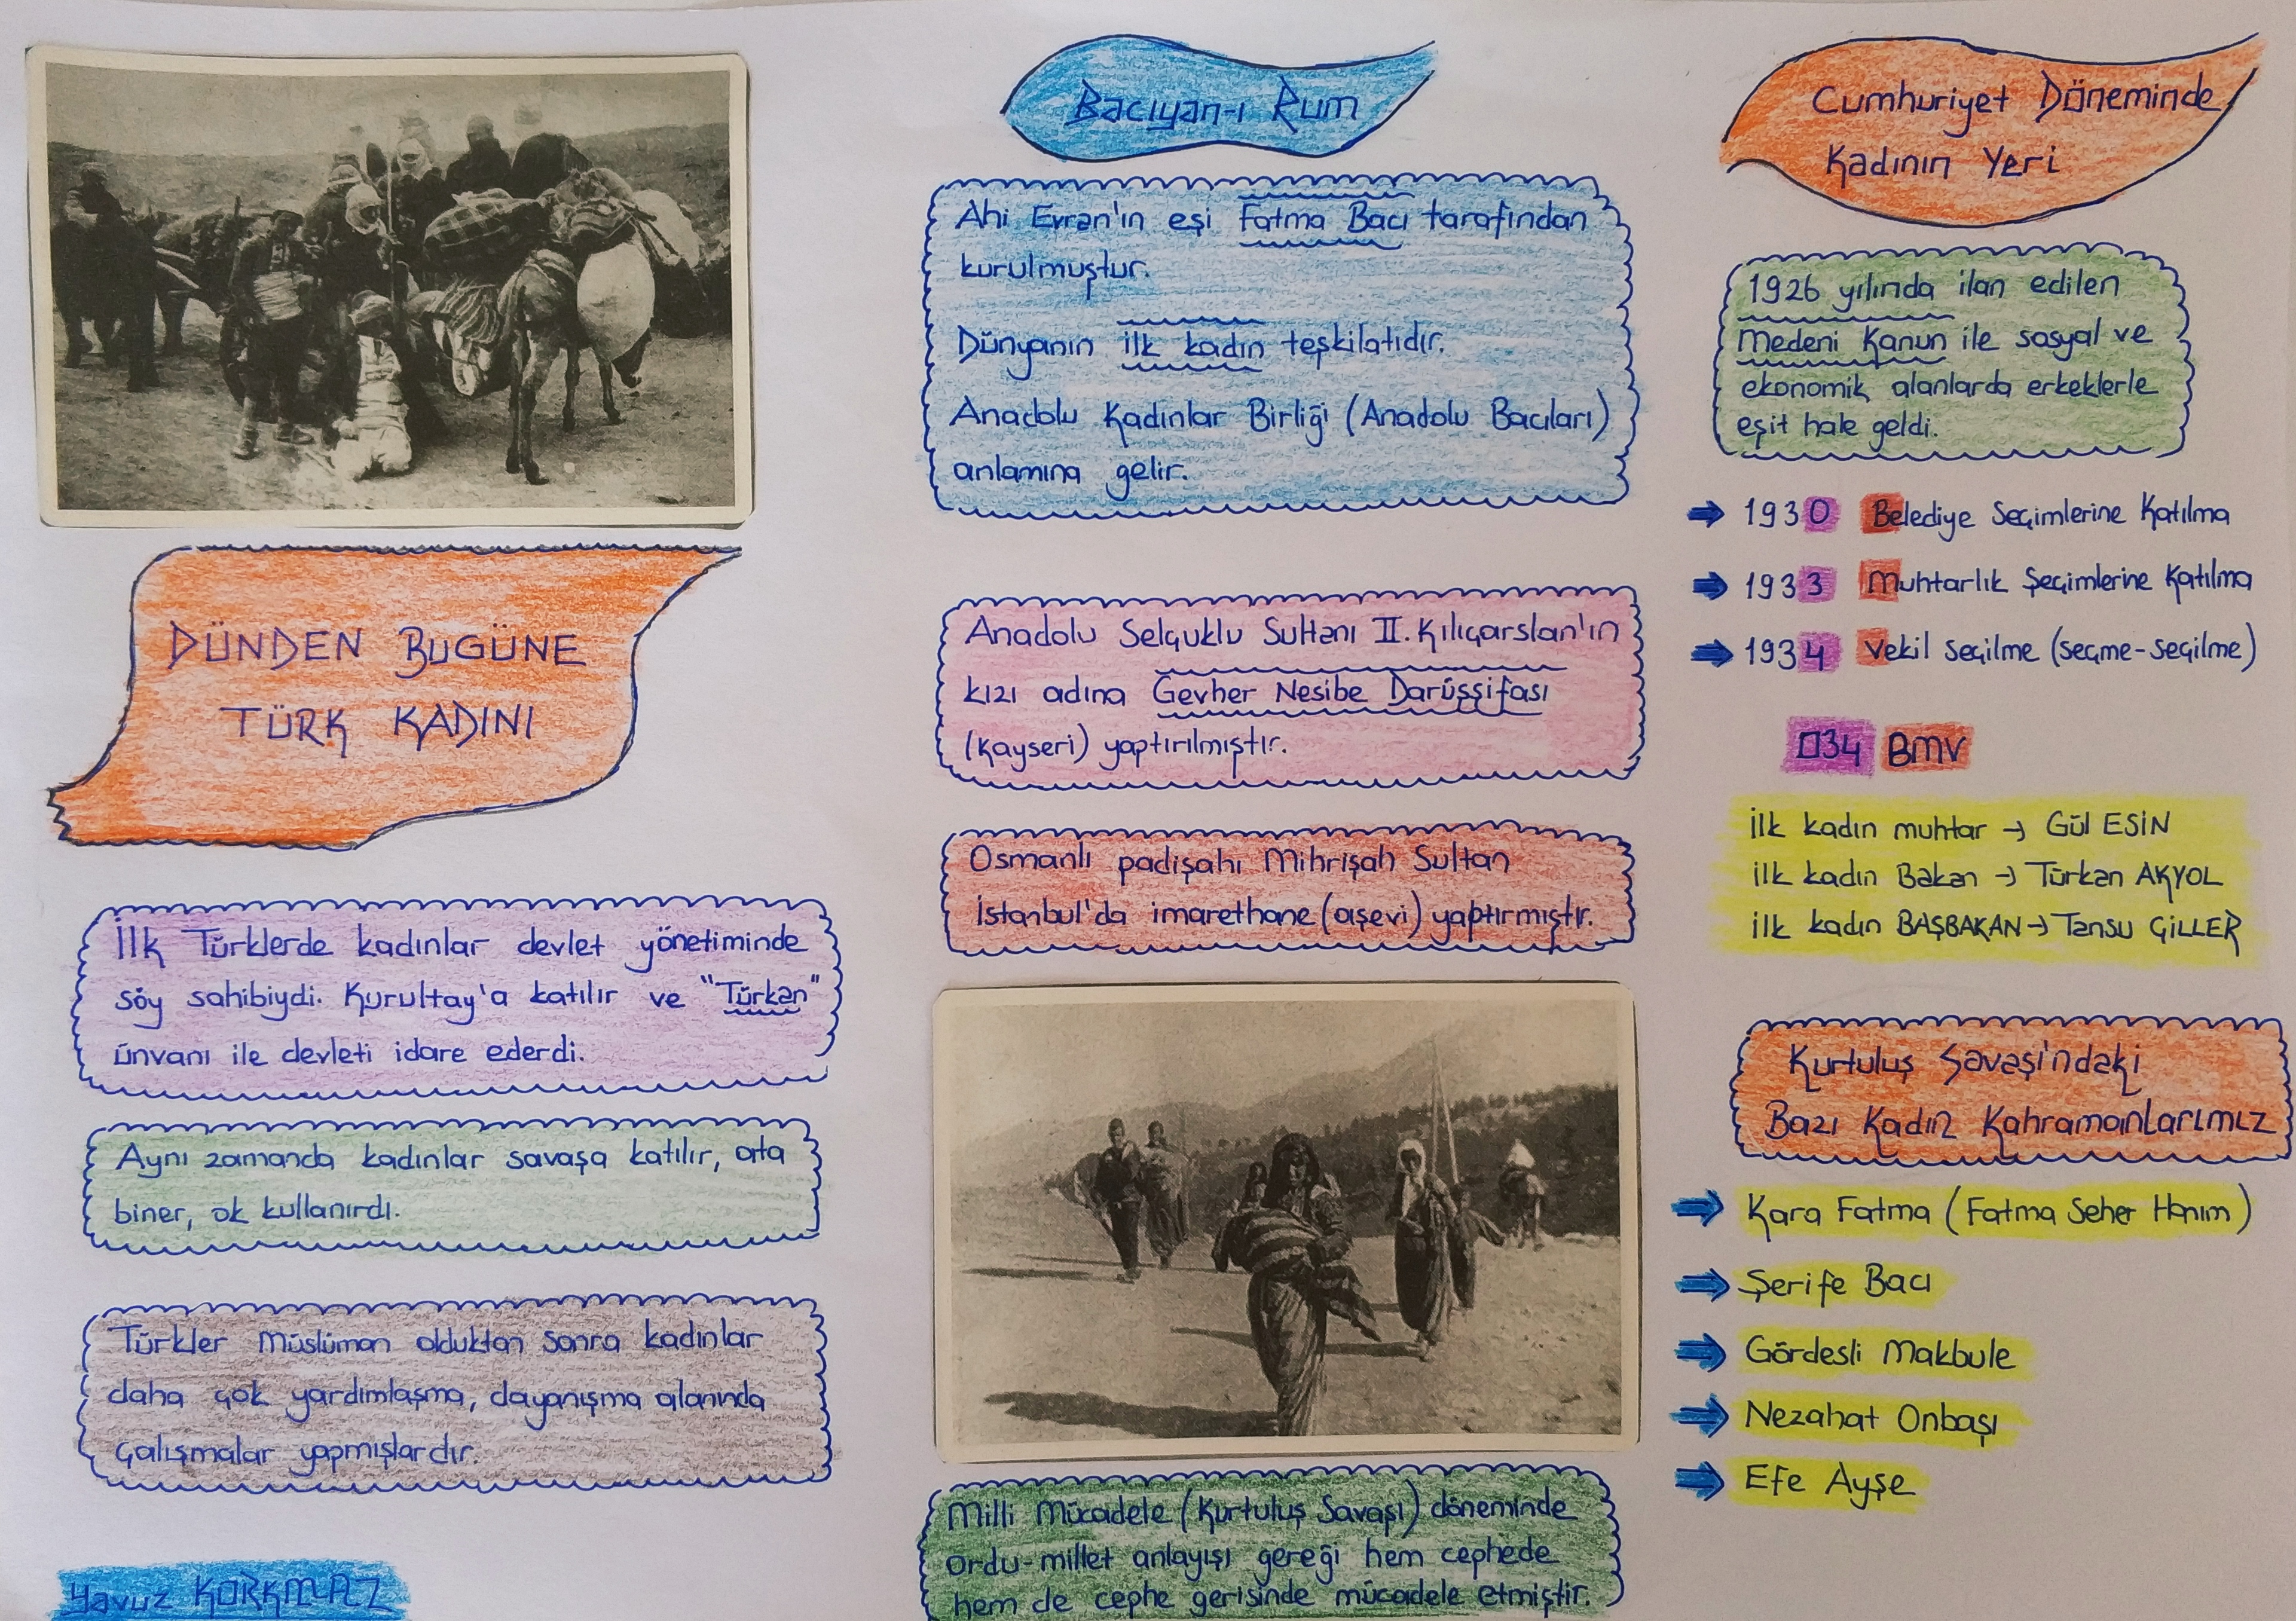 DÜNDEN BUGÜNE
TÜRK KADINI
İlk Türklerde kadınlar devlet yönetiminde
söy sahibiydi. Kurultay'a katılır ve "Türkan"
ünvanı ile devleti idare ederdi.
Aynı zamanda kadınlar savaşa katılır, ata
biner, ok kullanırdı.
Türkler Müslüman olduktan sonra kadınlar
daha çok yardımlaşma, dayanışma alanında
çalışmalar yapmışlardır.
Yavuz KORKMAZ
Bacıyan-ı Rum
Ahi Evran'ın eşi Fatma Bacı tarafından
kurulmuştur.
Dünyanın ilk kadın teşkilatıdır.
Anadolu Kadınlar Birliği (Anadolu Bacıları)
anlamına gelir.
Anadolu Selçuklu Sultanı II. Kılıçarslan'ın
kızı adına Gevher Nesibe Darüşşifası
(Kayseri) yaptırılmıştır.
Osmanlı padişahı Mihrişah Sultan
İstanbul'da imarethane (aşevi) yaptırmıştır.
Milli Mücadele (Kurtuluş Savaşı) döneminde
ordu-millet anlayışı gereği hem cephede
hem de cephe gerisinde mücadele etmiştir.
Cumhuriyet Döneminde
Kadının Yeri
1926 yılında ilan edilen
Medeni Kanun ile sosyal ve
ekonomik alanlarda erkeklerle
eşit hale geldi.
⇒ 1930 Belediye Seçimlerine Katılma
⇒ 1933 Muhtarlık Seçimlerine Katılma
⇒ 1934 Vekil Seçilme (seçme-seçilme)
034 BMV
İlk kadın muhtar → Gül ESİN
İlk kadın Bakan → Türkan AKYOL
İlk kadın BAŞBAKAN → Tansu ÇİLLER
Kurtuluş Savaşı'ndaki
Bazı Kadın Kahramanlarımız
⇒ Kara Fatma (Fatma Seher Hanım)
⇒ Şerife Bacı
⇒ Gördesli Makbule
⇒ Nezahat Onbaşı
⇒ Efe Ayşe